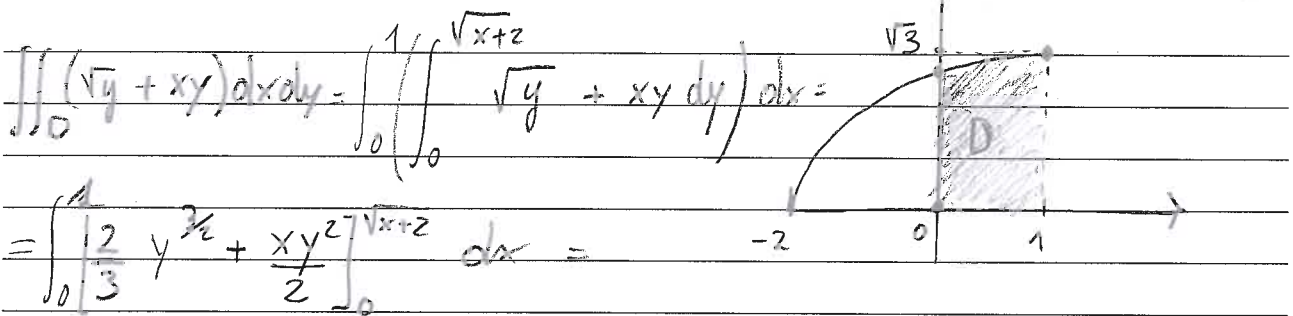 ∬_D (√y + xy) dxdy = ∫_0^1 ( ∫_0^√(x+2) √y + xy dy ) dx =
= ∫_0^1 [ 2/3 y^(3/2) + xy²/2 ]_0^√(x+2) dx =
√3
D
-2 0 1